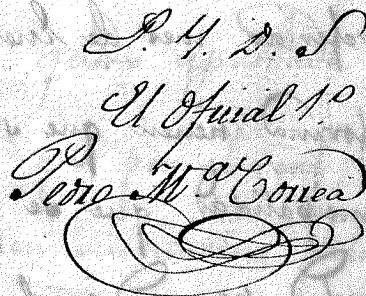 P. Y. D. S
El Oficial 1.º
Pedro M.ª Correa